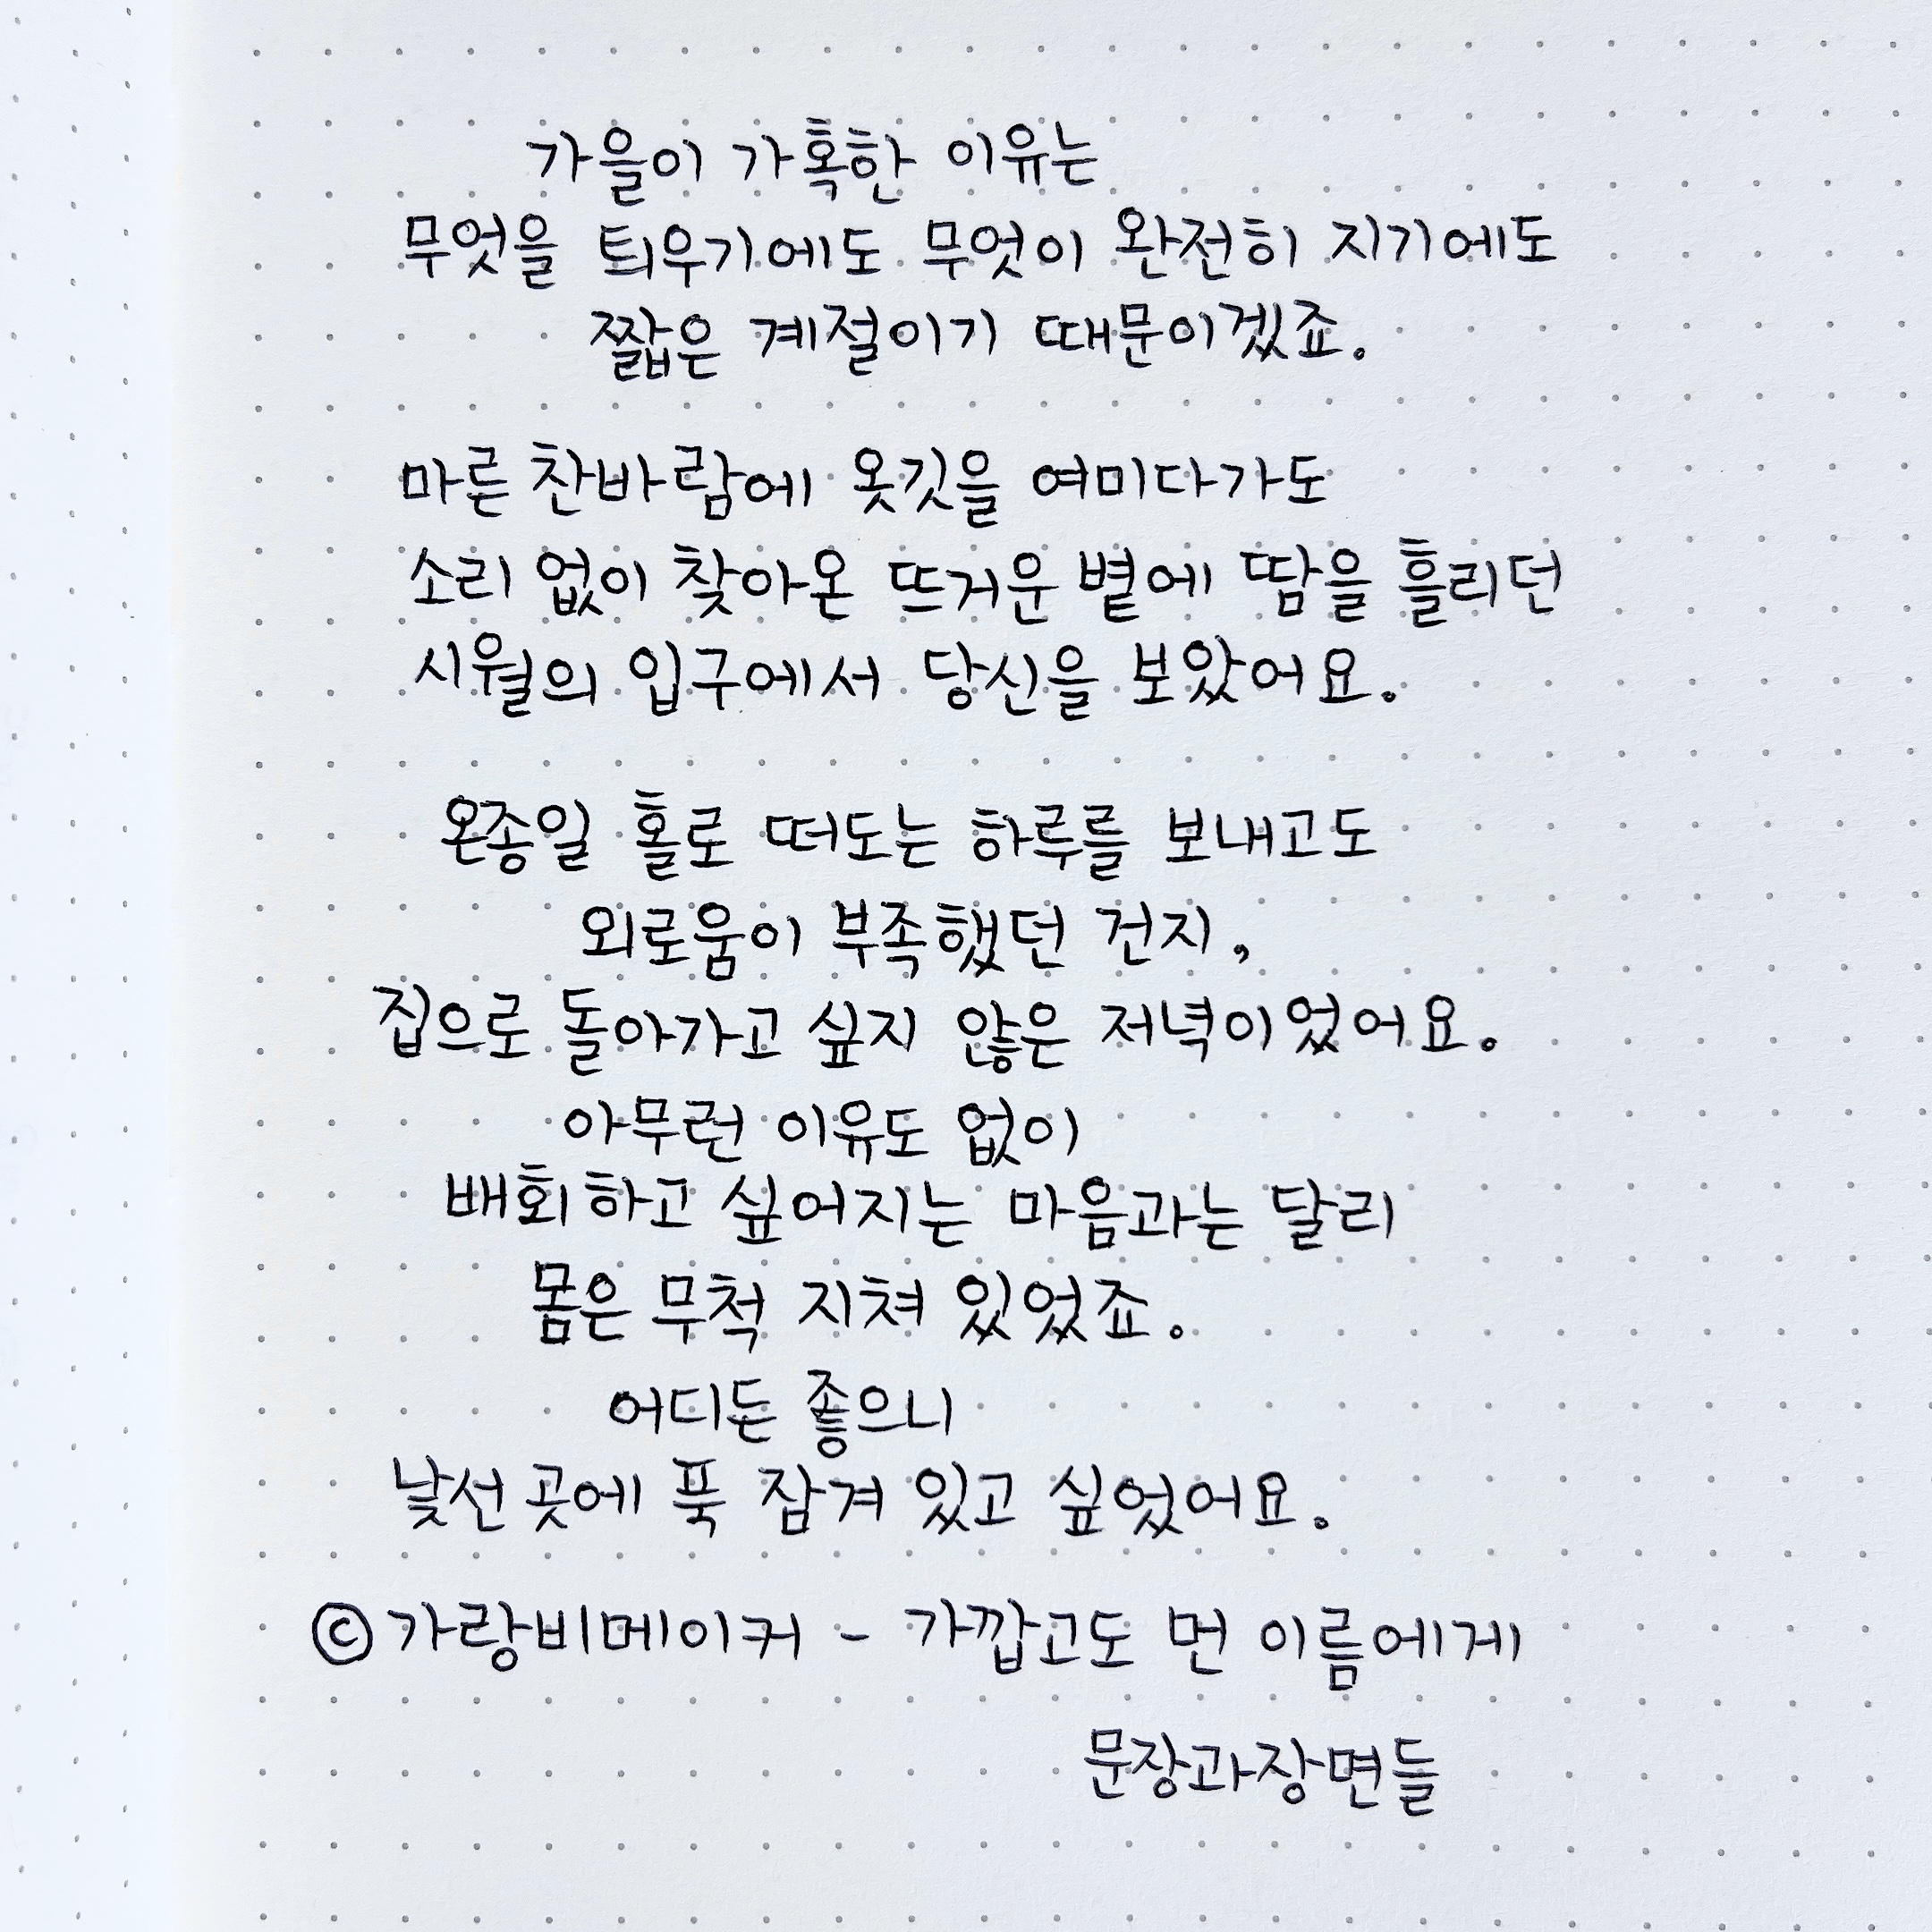 가을이 가혹한 이유는
무엇을 틔우기에도 무엇이 완전히 지기에도
짧은 계절이기 때문이겠죠.
마른 찬바람에 옷깃을 여미다가도
소리 없이 찾아온 뜨거운 볕에 땀을 흘리던
시월의 입구에서 당신을 보았어요.
온종일 홀로 떠도는 하루를 보내고도
외로움이 부족했던 건지,
집으로 돌아가고 싶지 않은 저녁이었어요.
아무런 이유도 없이
배회하고 싶어지는 마음과는 달리
몸은 무척 지쳐 있었죠.
어디든 좋으니
낯선 곳에 푹 잠겨 있고 싶었어요.
© 가랑비메이커 - 가깝고도 먼 이름에게
문장과장면들